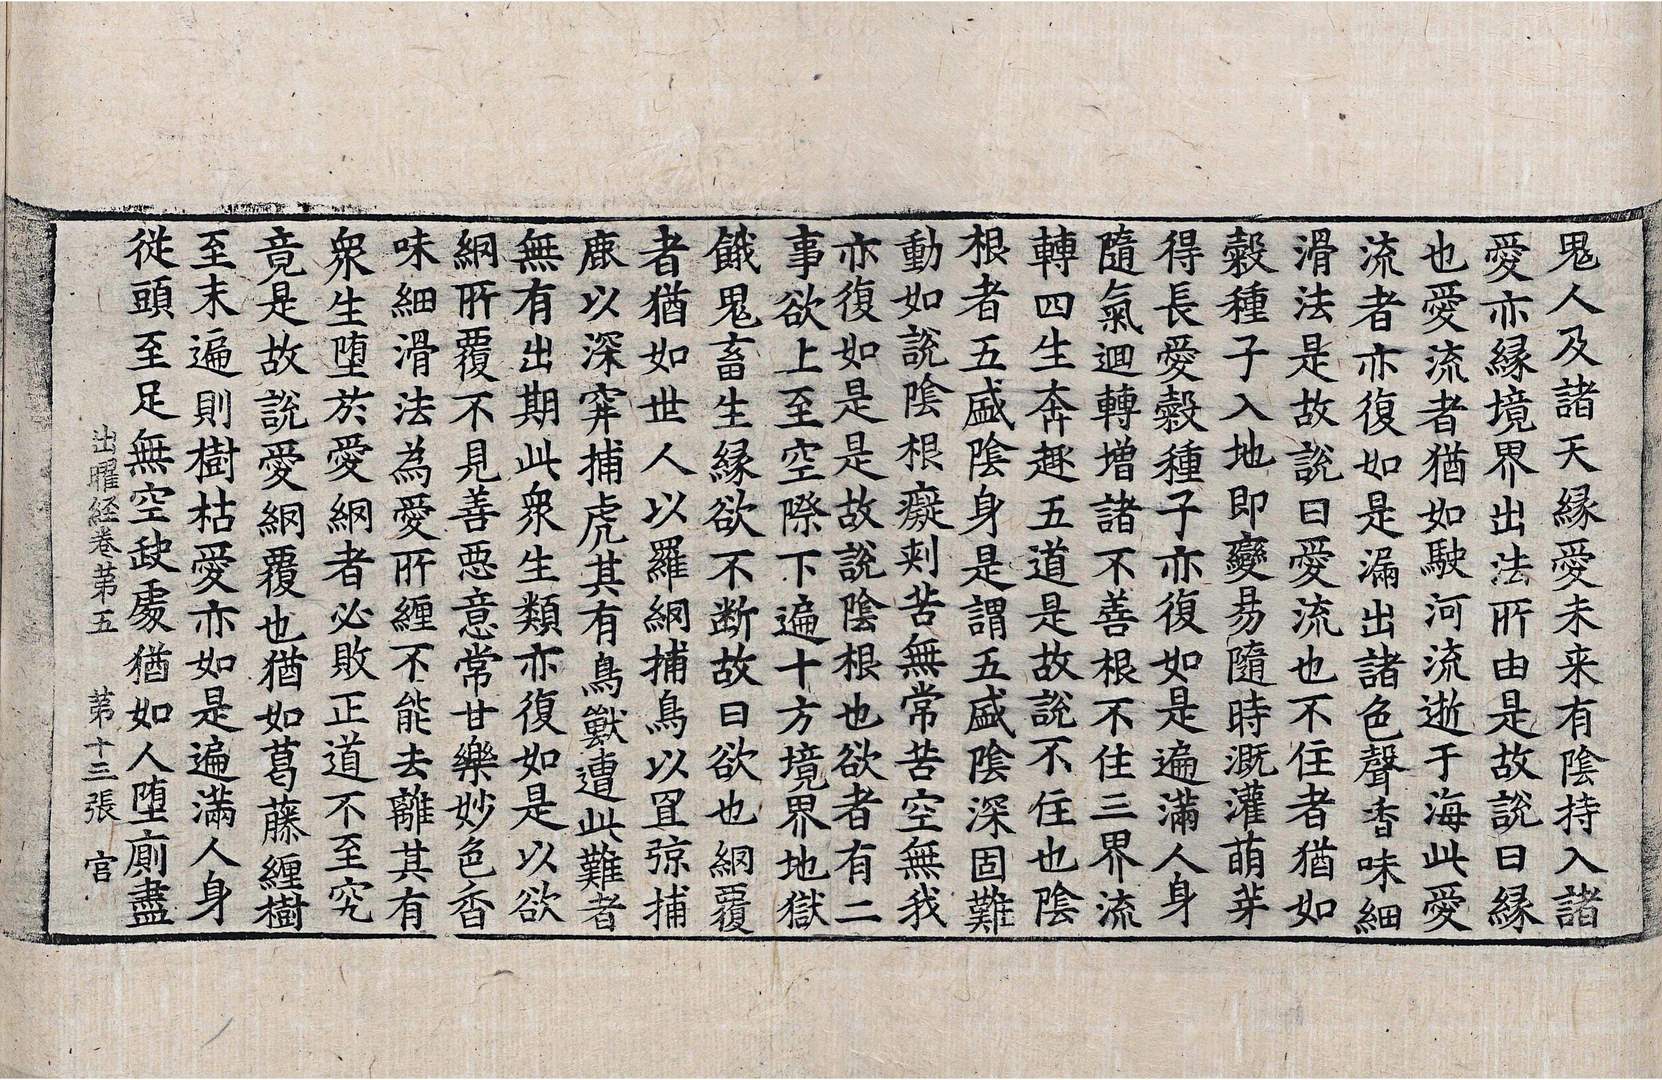 鬼人及諸天縁愛未来有陰持入諸
愛亦縁境界出法所由是故說曰縁
也愛流者猶如駛河流逝于海此愛
流者亦復如是漏出諸色聲香味細
滑法是故說曰愛流也不住者猶如
穀種子入地即變易隨時溉灌萌芽
得長愛穀種子亦復如是遍滿人身
隨氣迴轉增諸不善根不住三界流
轉四生奔趣五道是故說不住也陰
根者五盛陰身是謂五盛陰深固難
動如說陰根癡刺苦無常苦空無我
亦復如是是故說陰根也欲者有二
事欲上至空際下遍十方境界地獄
餓鬼畜生縁欲不断故曰欲也網覆
者猶如世人以羅網捕鳥以罝弶捕
鹿以深穽捕虎其有鳥獸遭此難者
無有出期此衆生類亦復如是以欲
網所覆不見善惡意常甘樂妙色香
味細滑法為愛所纏不能去離其有
衆生堕於愛網者必敗正道不至究
竟是故說愛網覆也猶如葛藤纏樹
至末遍則樹枯愛亦如是遍滿人身
從頭至足無空缺處猶如人堕廁盡
出曜経巻苐五　苐十三張　官